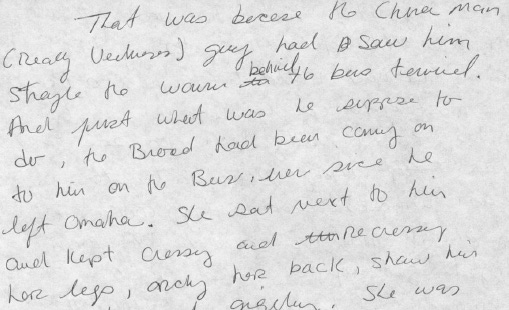 That was becase the China man
(Really Vechnases) guy had saw him
stragle the woum behind the bus terminel.
And just what was he suppose to
do, the Broad had been carring on
to him on the Bus, ever since he
left Omaha. She sat next to him
and kept crossy and recrossy
her legs, archy her back, shaw him
She was